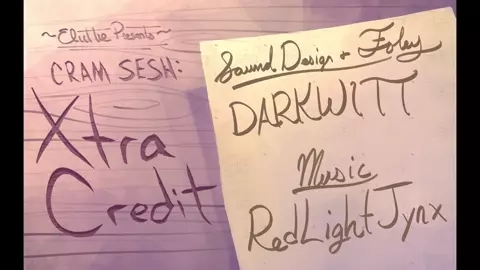 ~Eluthe Presents~
CRAM SESH:
Xtra
Credit
Sound Design + Foley
DARKWITT
Music
RedLightJynx